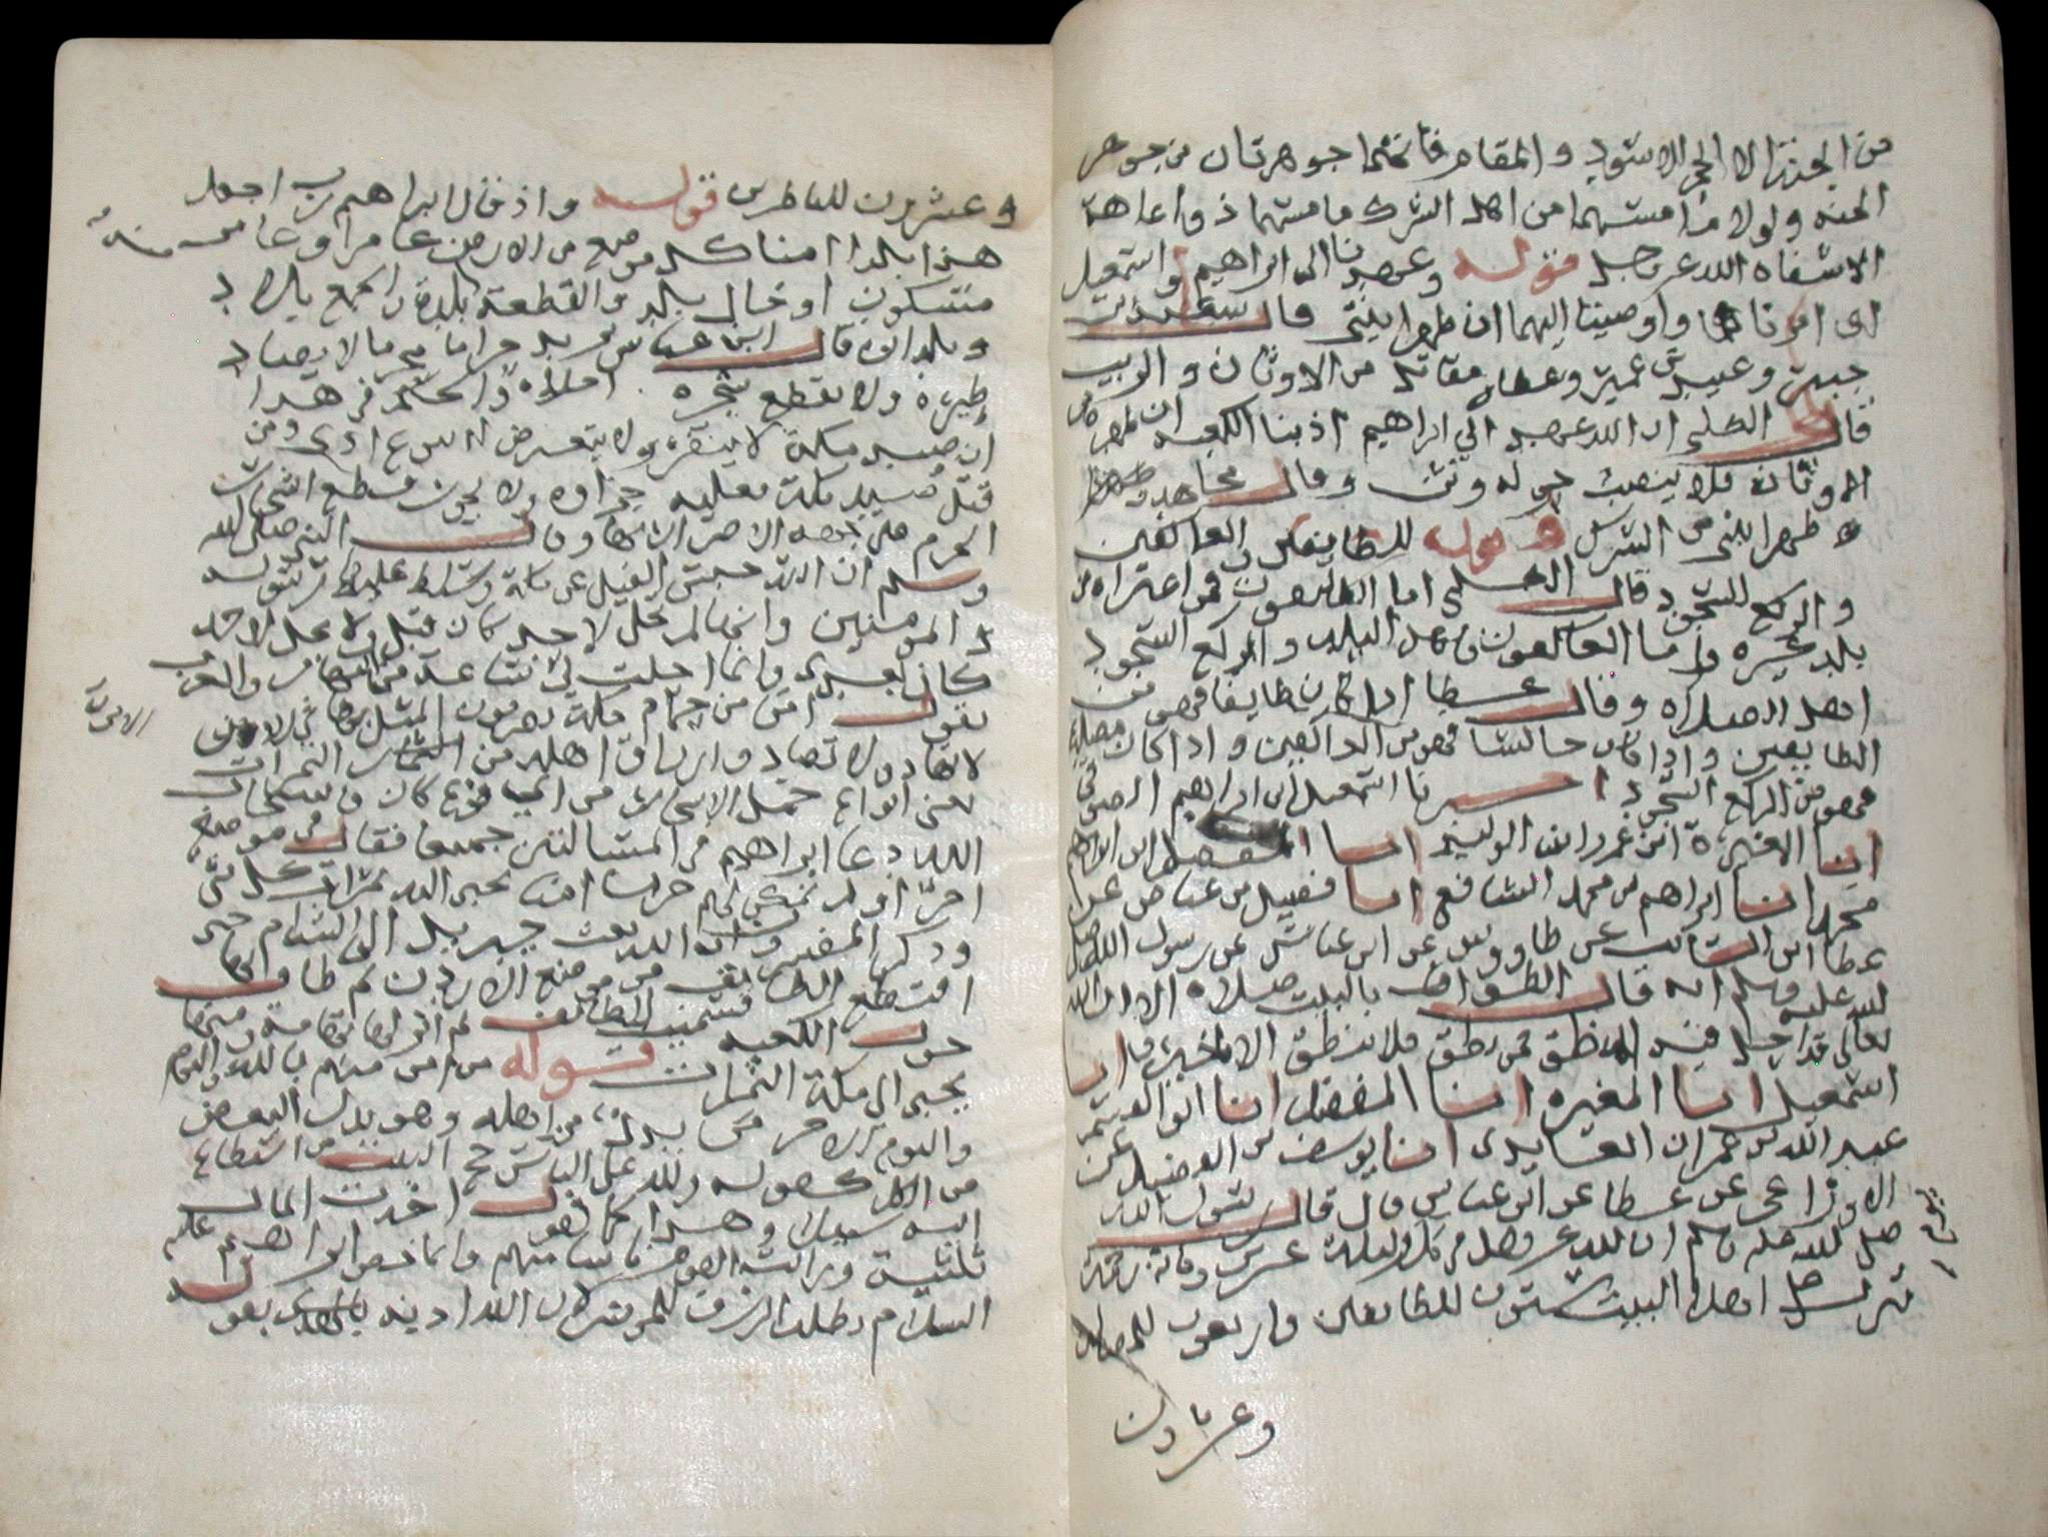 من الجنة الا الحجر الاسود والمقام فانهما جوهرتان من جوهر
الجنه ولولا ما مستهما من اهل الشرك ما مستهما ذو اعاهة
الا شفاه الله عز وجل قوله وعهدنا الى ابراهيم واسمعيل
اى امرناهما واوصينا اليهما ان طهرا بيتى قال سعيد بن
جبير وعبيد بن عمير وعطا ومقاتل من الاوثان والريب
قال الكلبى ان الله عهد الى ابراهيم اذ بنا الكعبه ان طهره من
الاوثان فلا ينصب حوله وثن وقال مجاهد
طهرا بيتى من الشرك وقوله للطايفين والعاكفين
والركع السجود قال الكلبى اما الطايفون فمن اعتراه من
بلد غيره واما العاكفون فاهل البلد والركع السجود
اهل الصلاه وقال عطا اذا كان طايفا فهو من
الطايفين واذا كان جالسا فهو من العاكفين واذا كان مصليا
فهو من الركع السجود اخبرنا اسمعيل بن ابراهيم الصوفى
انا المغيرة ابن عمرو ابن الوليد انا المفضل ابن
محمد انا ابراهيم بن محمد الشافعى انا فضيل بن عياض عن
عطا ابن السائب عن طاووس عن ابن عباس عن رسول الله صلى
الله عليه وسلم انه قال الطواف بالبيت صلاه الا ان الله
تعالى قد احل فيه المنطق فمن نطق فلا ينطق الا بخير
اسمعيل انا المغيره انا المفضل انا ابو القسم
عبد الله بن عمران العابدى انا يوسف بن الفيض عن
الاوزاعى عن عطا عن ابن عباس قال قال رسول الله
صلى الله عليه وسلم ان لله عز وجل فى كل يوم وليلة عشرين ومائة رحمة
تنزل على اهل البيت ستون للطايفين واربعون للمصلين
وعشرون
وعشرون للناظرين قوله واذ قال ابراهيم رب اجعل
هذا بلدا امنا كل موضع من الارض عامر او غامر
مسكون او خال بلد والقطعة بلدة والجمع بلاد
وبلدان قال ابن عباس يريد حراما محرما لا يصاد
طيره ولا يقطع شجره
ان صيد مكة لا ينفر ولا يتعرض له بنوع اذى ومن
قتل صيد مكة فعليه جزاوه ولا يجوز قطع اشجار
الحرم على جهه الاضرار بها وقال النبى صلى الله
وسلم ان الله حبس الفيل عن مكة وسلط عليها رسوله
والمومنين وانها لم تحل لاحد كان قبلى ولا تحل لاحد
كان بعدى وانما احلت لى ساعة من النهار والعرب
تقول امن من حمام مكة يضربون المثل بها فى الامن
لانها لا تهاج ولا تصاد وارزق اهله من الثمرات
يعنى انواع حمل الاشجار من اى نوع كان فاستجاب
الله دعا ابراهيم فى المسالتين جميعا فقال فى موضع
اخر او لم نمكن لهم حرما امنا يجبى اليه ثمرات كل شى
وذكر المفسرون ان الله بعث جبريل الى الشام حتى
اقتطع الطايف من موضع الاردن ثم طاف بها
حول الكعبه فسميت الطائف ثم انزلها تهامة ومنها
يجبى الى مكة الثمرات قوله من امن منهم بالله واليوم
واليوم الاخر من بدل من اهله وهو بدل البعض
من الكل كقوله ولله على الناس حج البيت من استطاع
اليه سبيلا وهذا كما تقول اخذت المال
ثلثيه ورايت القوم ناسا منهم وانما خص ابراهيم عليه
السلام بطلب الرزق للمومنين لان الله ادبه بقوله